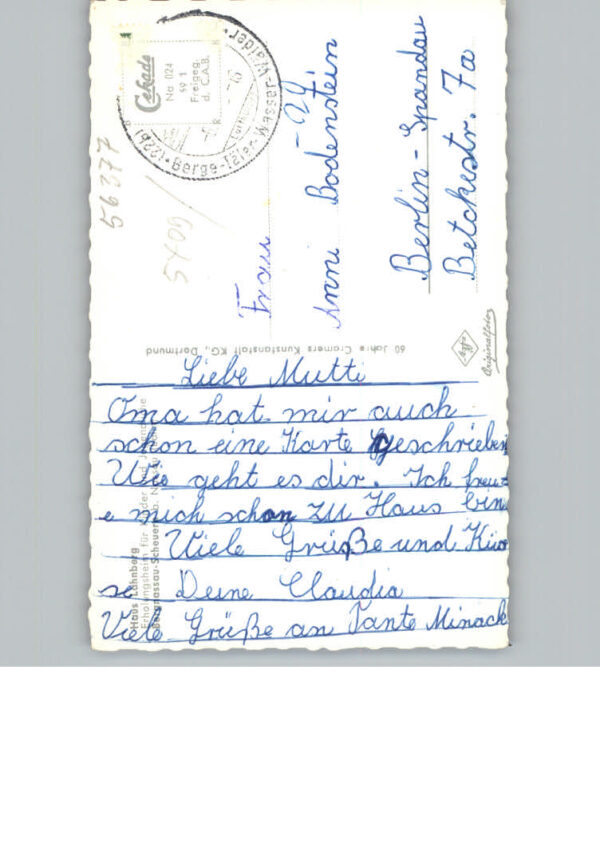 Cekade
No 024
59 1
Freigeg.
d. C.A.B.
Berge-Täler-Wasser-Wälder
56377
5409/
Frau
Anni Bodenstein
-29
Berlin-Spandau
Betckestr. 7a
60 Jahre Cramers Kunstanstalt KG., Dortmund
Agfa
Originalfoto
Liebe Mutti
Oma hat mir auch
schon eine Karte geschrieben
Wie geht es dir. Ich freu
e mich schon zu Haus bin
Viele Grüße und Küs
se Deine Claudia
Viele Grüße an Tante Minack
Haus Lahnberg
Erholungsheim für Kinder und Jugendliche
Bergnassau-Scheuern b. Nassau